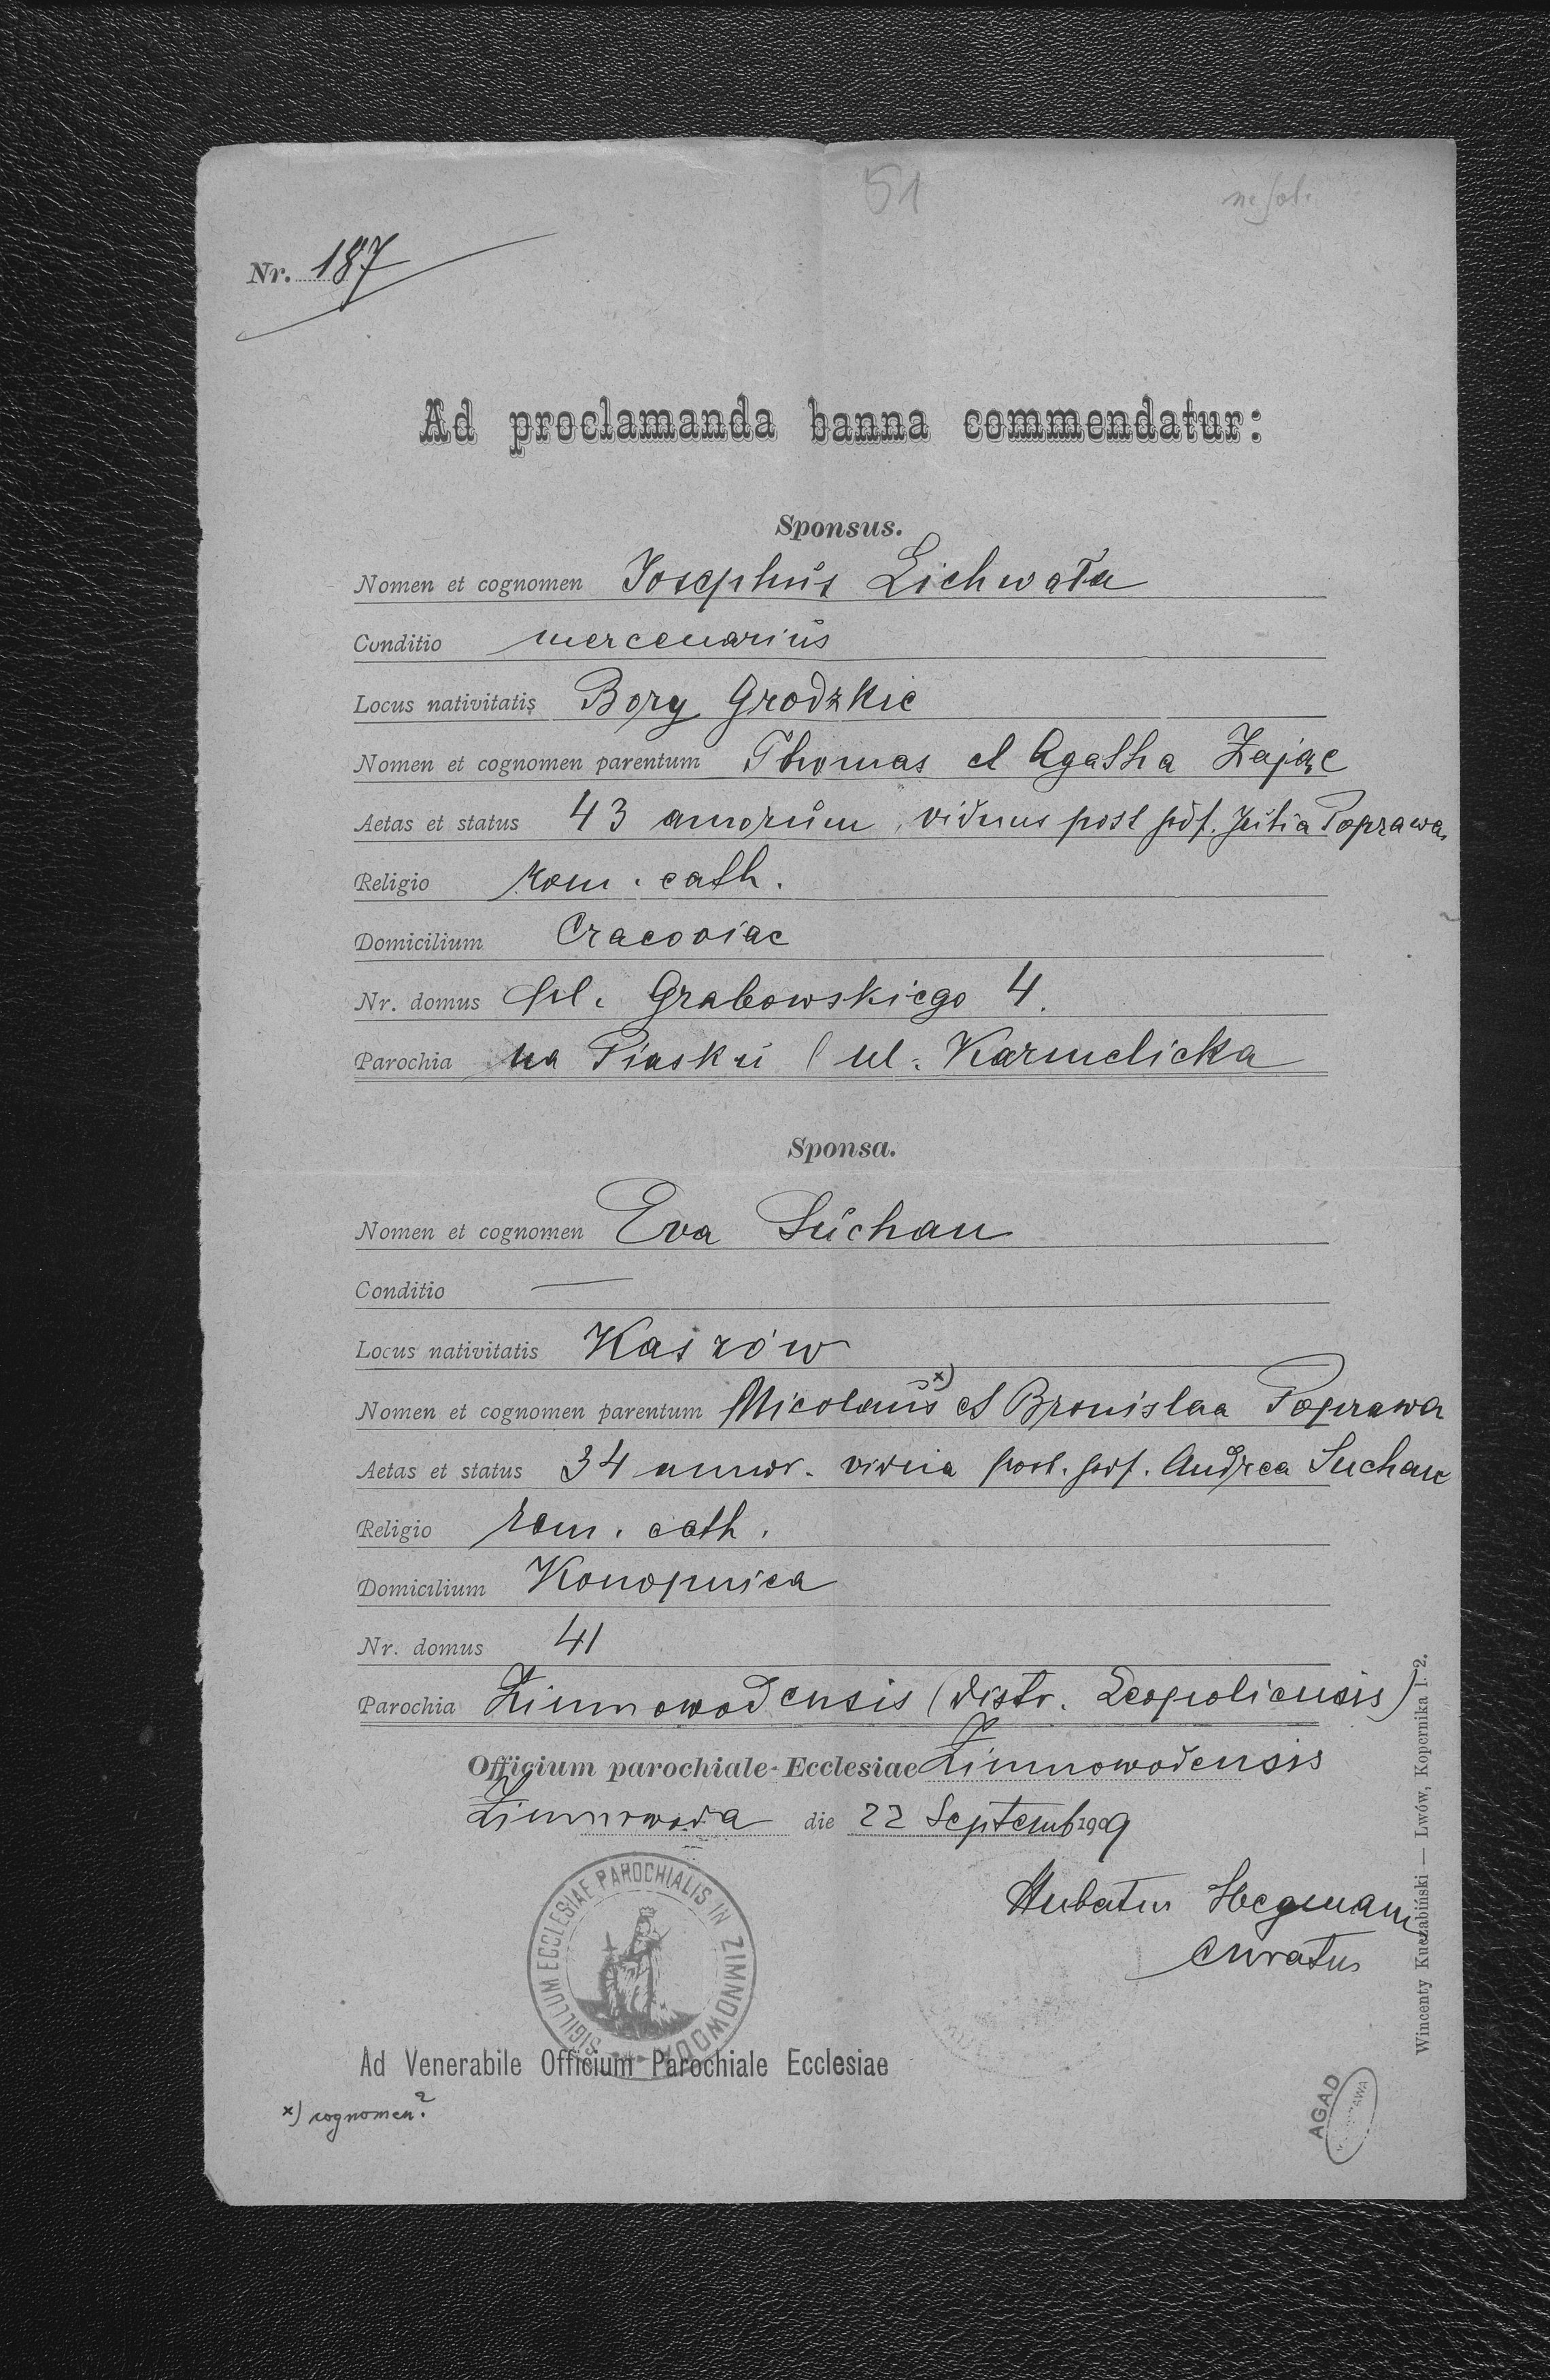 51
Nr. 187
Ad proclamanda banna commendatur:
Sponsus.
Nomen et cognomen Josephus Lichwała
Conditio mercenarius
Locus nativitatis Bory Grodzkie
Nomen et cognomen parentum Thomas et Agatha Zając
Aetas et status 43 annorum, viduus post pdf. Julia Poprawa
Religio rom. cath.
Domicilium Cracoviae
Nr. domus pl. Grabowskiego 4.
Parochia na Piasku ( ul. Karmelicka
Sponsa.
Nomen et cognomen Eva Suchan
Conditio —
Locus nativitatis Kaszów
Nomen et cognomen parentum Micolaus x) et Bronislaa Poprawa
Aetas et status 34 annor. vidua post. pdf. Andrea Suchan
Religio rom. cath.
Domicilium Konopnica
Nr. domus 41
Parochia Zimnowodensis (distr. Leopoliensis)
Officium parochiale Ecclesiae Zimnowodensis
Zimnowoda die 22 Septemb 1909
Hegmann
curatus
SIGILLUM ECCLESIAE PAROCHIALIS IN ZIMNOWODA
Ad Venerabile Officium Parochiale Ecclesiae
x) cognomen?
AGAD
Wincenty Kuczabiński — Lwów, Kopernika l. 2.